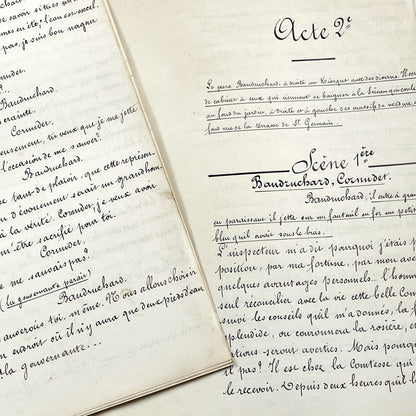 de savoir si tu es un
mes en été, l'eau est excel-
pas, je suis bon nageur
Cornudet.
?...
Baudruchard.
crainte.
Cornudet.
eusement, tu veux que je me jette
l'occasion de me sauver?
Baudruchard.
tant de plaisir, que cette représen-
n dévouement serait un grand hom-
à la vérité. Cornudet, je veux avoir
m'être sacrifié pour toi.
Cornudet.
me sauvais pas?
(la gouvernante paraît)
Baudruchard.
sauverais toi-même. Nous allons choisir
un endroit où il n'y aura que deux pieds d'eau
la gouvernante...
Acte 2e
Le parc Baudruchard, à droite un Kiosque avec des divans. Il sert
de cabinet à ceux qui viennent se baigner à la Seine qui coule
au fond du jardin, à droite et à gauche des massifs de verdure
fait vue de la terrasse de St Germain.
Scène 1ère
Baudruchard, Cornudet.
Baudruchard, il entre à gra
en paraissant il jette sur un fauteuil en fer un petit
bleu qu'il avait sous le bras.
L'inspecteur m'a dit pourquoi j'étais p
position, par ma fortune, par mon ave
quelques avantages personnels. l'hom
seul réconcilier avec la vie cette belle Com
suivi les conseils qu'il m'a donnés, la f
splendide, on couronnera la rosière, c
ations seront averties. Mais pourquo
il pas? Il est chez la Comtesse qui
le recevoir. Depuis deux heures qu'il